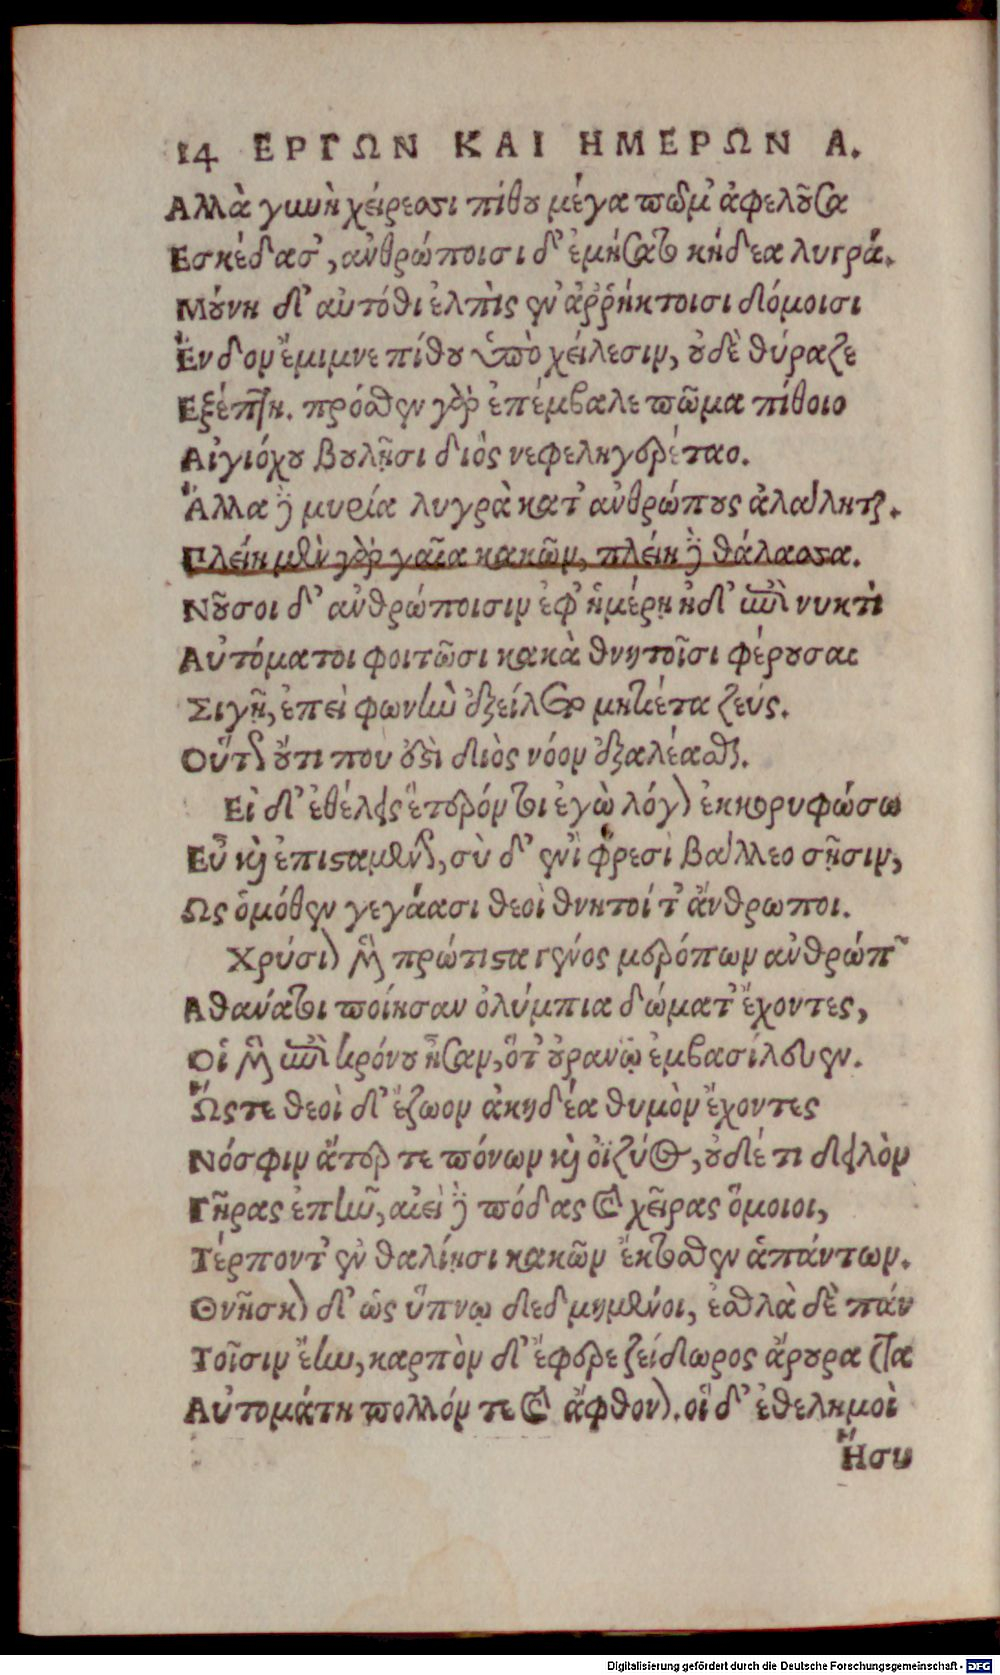 14 ΕΡΓΩΝ ΚΑΙ ΗΜΕΡΩΝ Α.
Αλλὰ γυνὴ χείρεσσι πίθου μέγα πῶμ᾽ ἀφελοῦσα
Εσκέδασ᾽, ἀνθρώποισι δ᾽ ἐμήσατο κήδεα λυγρά.
Μούνη δ᾽ αὐτόθι ἐλπὶς ἐν ἀῤῥήκτοισι δόμοισι
Ἔνδον ἔμιμνε πίθου ὑπὸ χείλεσιν, οὐδὲ θύραζε
Εξέπτη. πρόσθεν γὰρ ἐπέμβαλε πῶμα πίθοιο
Αἰγιόχου βουλῇσι διὸς νεφεληγερέταο.
Ἄλλα δὲ μυρία λυγρὰ κατ᾽ ἀνθρώπους ἀλάληται.
Πλείη μὲν γὰρ γαῖα κακῶν, πλείη δὲ θάλασσα.
Νοῦσοι δ᾽ ἀνθρώποισιν ἐφ᾽ ἡμέρῃ ἠδ᾽ ἐπὶ νυκτὶ
Αὐτόματοι φοιτῶσι κακὰ θνητοῖσι φέρουσαι
Σιγῇ, ἐπεὶ φωνὴν ἐξείλετο μητιέτα ζεύς.
Οὕτως οὔτι που ἐστὶ διὸς νόον ἐξαλέασθαι.
Εἰ δ᾽ ἐθέλεις ἕτερόν τοι ἐγὼ λόγον ἐκκορυφώσω
Εὖ καὶ ἐπισταμένως, σὺ δ᾽ ἐνὶ φρεσὶ βάλλεο σῇσιν,
Ως ὁμόθεν γεγάασι θεοὶ θνητοί τ᾽ ἄνθρωποι.
Χρύσεον μὲν πρώτιστα γένος μερόπων ἀνθρώπων
Αθανάτοι ποίησαν ὀλύμπια δώματ᾽ ἔχοντες,
Οἱ μὲν ἐπὶ κρόνου ἦσαν, ὅτ᾽ οὐρανῷ ἐμβασίλευεν.
Ὥςτε θεοὶ δ᾽ ἔζωον ἀκηδέα θυμὸν ἔχοντες
Νόσφιν ἄτερ τε πόνων καὶ ὀϊζύος, οὐδέ τι δειλὸν
Γῆρας ἐπῆν, αἰεὶ δὲ πόδας καὶ χεῖρας ὅμοιοι,
Τέρποντ᾽ ἐν θαλίῃσι κακῶν ἔκτοσθεν ἁπάντων.
Θνῆσκον δ᾽ ὡς ὕπνῳ δεδμημένοι, ἐσθλὰ δὲ πάντα
Τοῖσιν ἔην, καρπὸν δ᾽ ἔφερε ζείδωρος ἄρουρα
Αὐτομάτη πολλόν τε καὶ ἄφθονον. οἳ δ᾽ ἐθελημοὶ
Ἥσυ
Digitalisierung gefördert durch die Deutsche Forschungsgemeinschaft - DFG